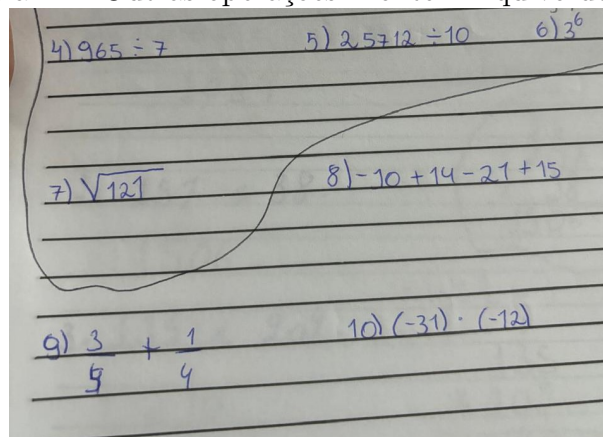 4) 965 ÷ 7    5) 25712 ÷ 10    6) 3⁶
7) √121    8) -10 + 14 - 21 + 15
9) 3/5 + 1/4    10) (-31) · (-12)